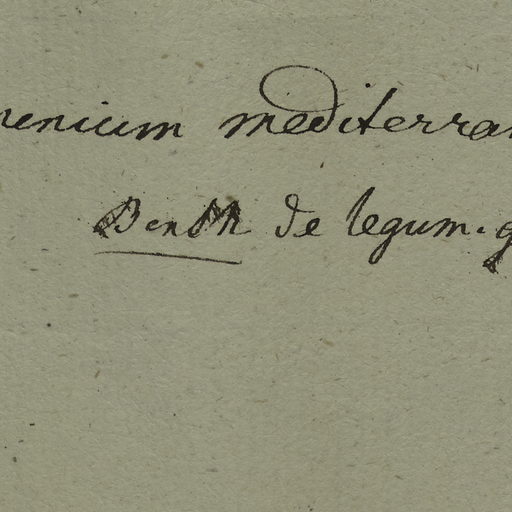 nenium mediterran
Benth de legum. g